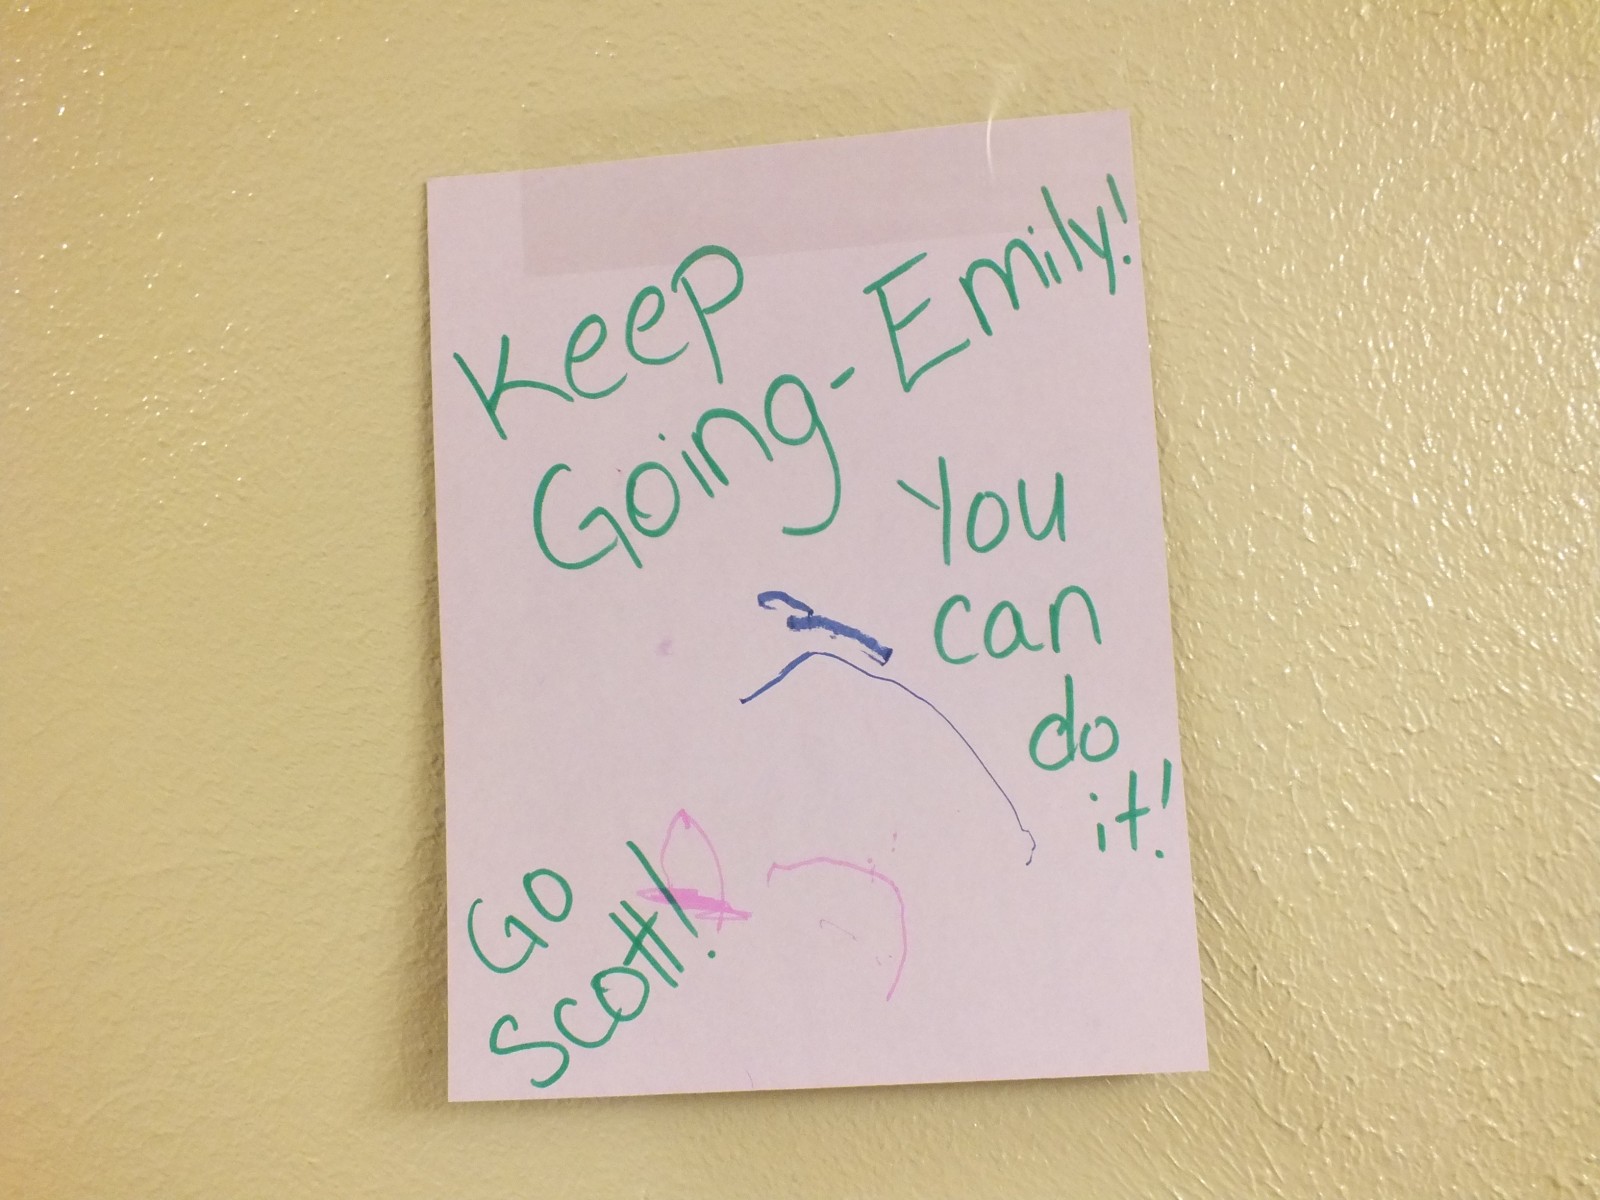 Keep
Going - Emily!
You
can
do
it!
Go
Scott!